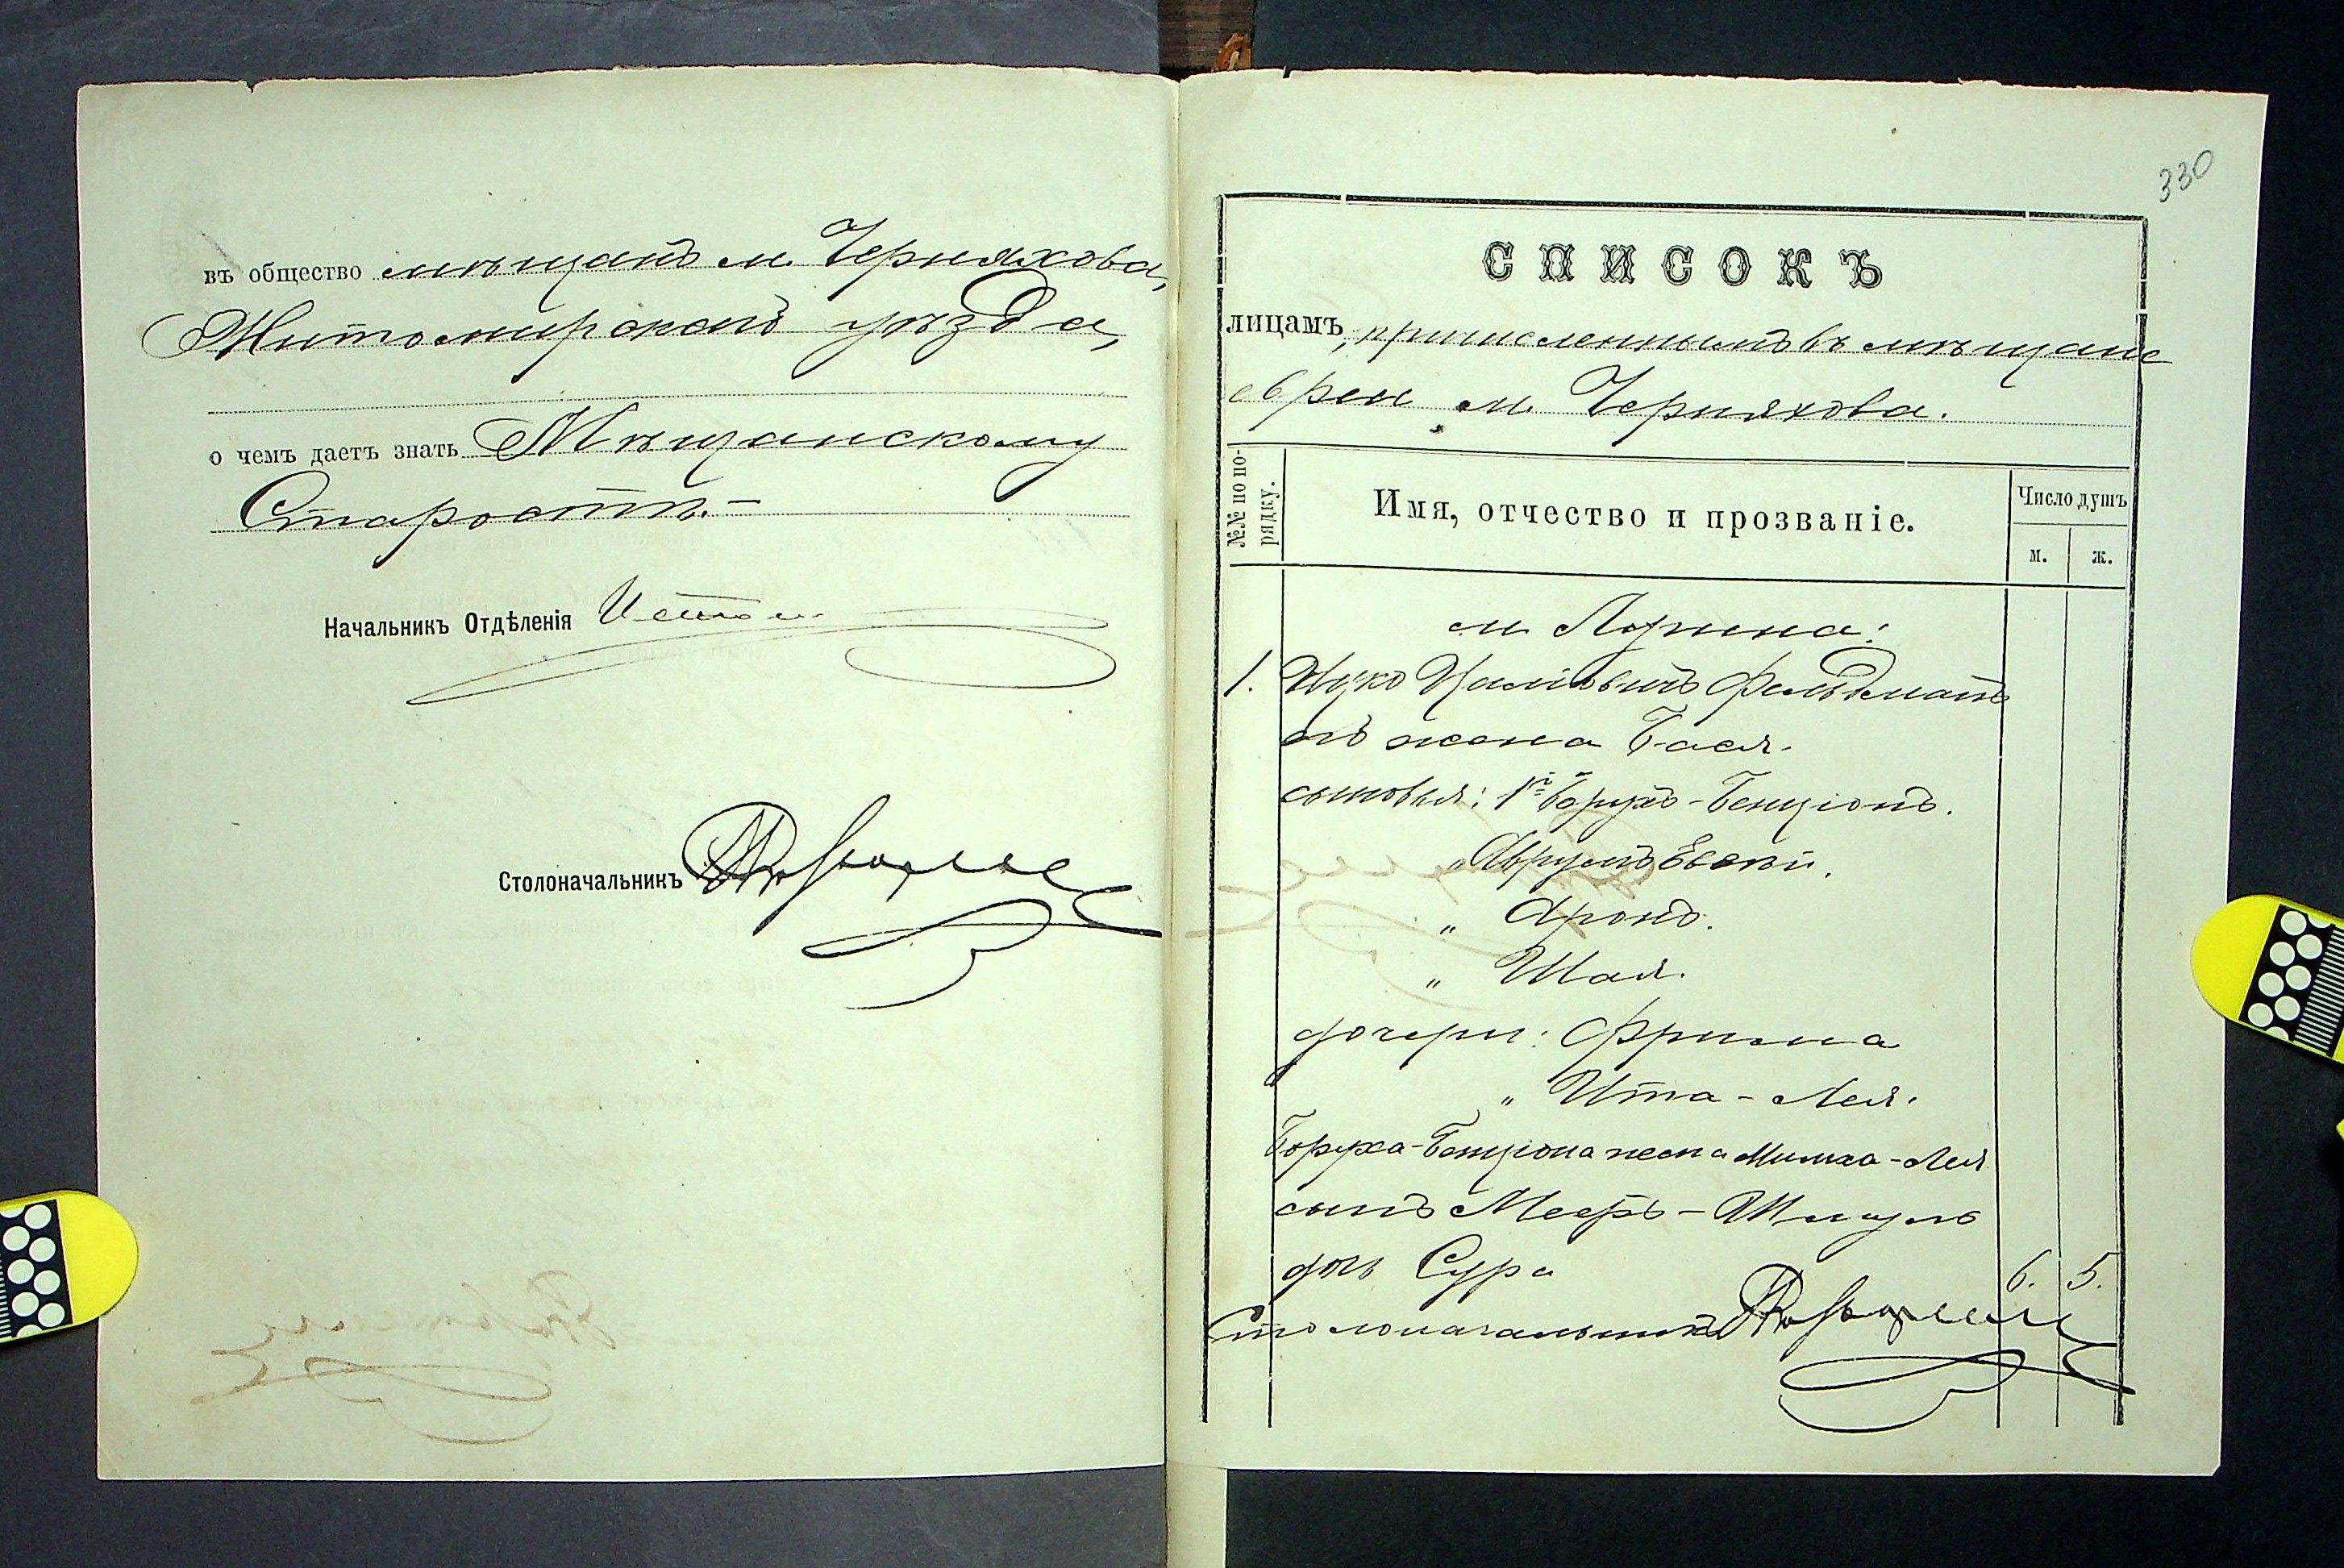 въ общество мѣщанъ м. Черняхова,
Житомирскаго уѣзда,
о чемъ даетъ знать Мѣщанскому
Старостѣ.-
Начальникъ Отдѣленія
Столоначальникъ
330
СПИСОКЪ
лицамъ, причисленнымъ въ мѣщане
евреи м. Черняхова.
№№ по по-
рядку.
Имя, отчество и прозваніе.
Число душъ
м.
ж.
1. Ицко Фельдманъ
его жена Бася.
сыновья: 1й Борухъ-Бенціонъ.
" Аврумъ Евсѣй.
" Аронъ.
" Шая.
дочери: Фрима
" Ита-Лея.
Боруха-Бенціона жена Лея
сынъ Мееръ-Шмуль
дочь Сура 6. 5.
Столоначальникъ